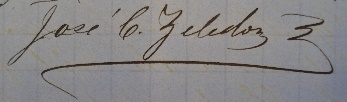 José C. Zeledon